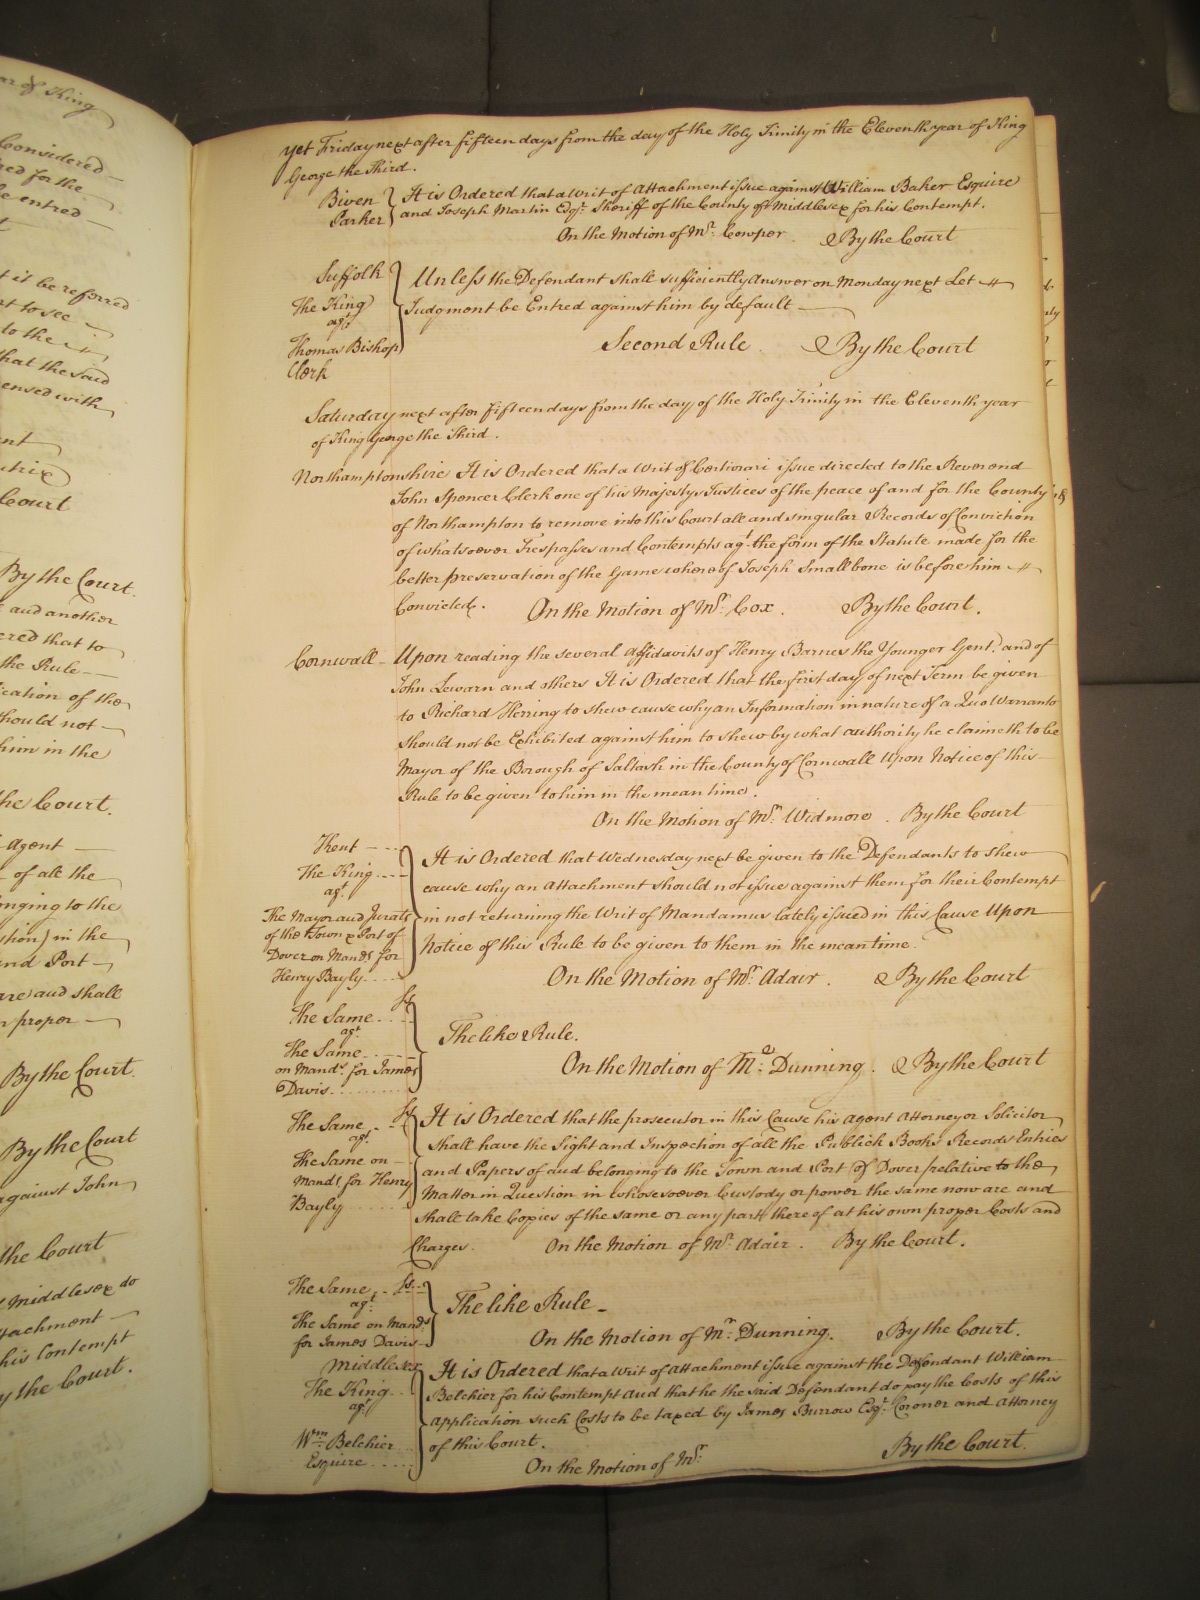 ar of King
Considered
red for the
be entred
t
t it be referred
rt to see
to the
that the said
ensed with
ent
utrix
Court
By the Court.
and another
ered that to
the Rule
ication of the
should not
him in the
the Court.
Agent
of all the
onging to the
stion) in the
and Port
are and shall
n proper
By the Court.
By the Court
against John
the Court
Middlesex do
ttachment
his Contempt
y the Court.
yet Friday next after fifteen days from the day of the Holy Trinity in the Eleventh year of King
George the Third.
Biven It is Ordered that a Writ of Attachment issue against William Baker Esquire
Parker and Joseph Martin Esqr. Sheriff of the County of Middlesex for his Contempt.
On the Motion of Mr. Cowper. By the Court
Suffolk Unless the Defendant shall sufficiently Answer on Monday next Let
The King Judgment be Entred against him by default
agt.
Thomas Bishop Second Rule. By the Court
Clerk
Saturday next after fifteen days from the day of the Holy Trinity in the Eleventh year
of King George the Third.
Northamptonshire It is Ordered that a Writ of Certiorari issue directed to the Reverend
John Spencer Clerk one of his Majestys Justices of the peace of and for the County
of Northampton to remove into this Court all and singular Records of Conviction
of whatsoever Trespasses and Contempts agt. the form of the Statute made for the
better preservation of the Game whereof Joseph Smallbone is before him
Convicted. On the Motion of Mr. Cox. By the Court.
Cornwall Upon reading the several Affidavits of Henry Barnes the Younger Gent. and of
John Leworn and others It is Ordered that the first day of next Term be given
to Richard Herring to shew cause why an Information in nature of a Quo Warranto
should not be Exhibited against him to shew by what authority he claimeth to be
Mayor of the Borough of Saltash in the County of Cornwall Upon Notice of this
Rule to be given to him in the mean time.
On the Motion of Mr. Widmore. By the Court
Kent It is Ordered that Wednesday next be given to the Defendants to shew
The King cause why an Attachment should not issue against them for their Contempt
agt.
The Mayor and Jurats in not returning the Writ of Mandamus lately issued in this Cause Upon
of the Town & Port of
Dover on Mands. for Notice of this Rule to be given to them in the mean time.
Henry Bayly On the Motion of Mr. Adair. By the Court
The Same ss
agt. The like Rule.
The Same
on Mands. for James On the Motion of Mr. Dunning. By the Court
Davis
The Same ss It is Ordered that the prosecutor in this Cause his Agent Attorney or Solicitor
agt. shall have the Sight and Inspection of all the Publick Books Records Entries
The Same on and Papers of and belonging to the Town and Port of Dover relative to the
Mands. for Henry Matter in Question in whosesoever Custody or power the same now are and
Bayly shall take Copies of the same or any part thereof at his own proper Costs and
Charges. On the Motion of Mr. Adair. By the Court.
The Same ss.
agt. The like Rule
The Same on Mands.
for James Davis On the Motion of Mr. Dunning. By the Court.
Middlesex It is Ordered that a Writ of Attachment issue against the Defendant William
The King Belchier for his Contempt And that he the said Defendant do pay the Costs of this
agt. Application such Costs to be taxed by James Burrow Esqr. Coroner and Attorney
Wm. Belchier of this Court.
Esquire On the Motion of Mr. By the Court.